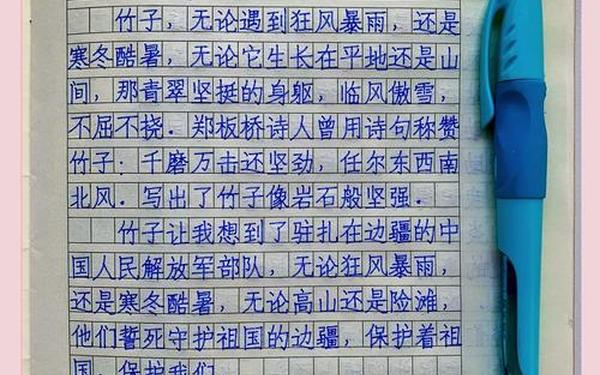 竹子，无论遇到狂风暴雨，还是
寒冬酷暑，无论它生长在平地还是山
间，那青翠坚挺的身躯，临风傲雪，
不屈不挠．郑板桥诗人曾用诗句称赞
竹子：千磨万击还坚劲，任尔东西南
北风．写出了竹子像岩石般坚强．
竹子让我想到了驻扎在边疆的中
国人民解放军部队，无论狂风暴雨，
还是寒冬酷暑，无论高山还是险滩，
他们誓死守护祖国的边疆，保护着祖
国，保护我们